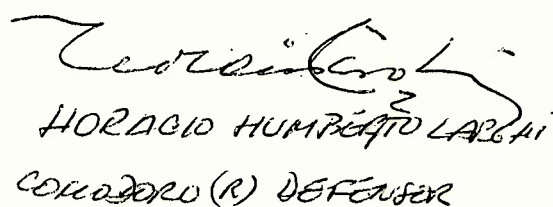 HORACIO HUMBERTO LARCHI
COMODORO (R) DEFENSOR